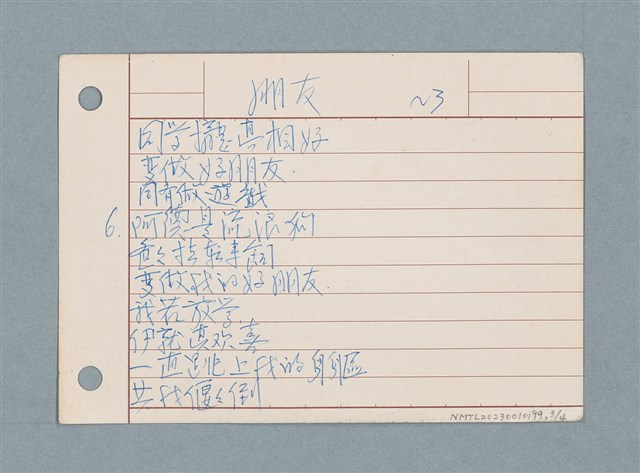 朋友 ~3
同学攏真相好
變做好朋友.
同有做遊戲
6. 阿僄是流浪狗
拾轉來飼
變做我的好朋友.
我若放学
伊就真欢喜
一直跳上我的身軀
共我偃倒
NMTL20230010199.3/4